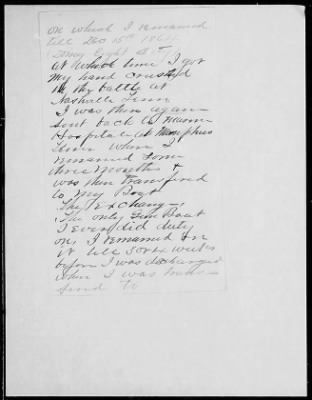 on which I remained
till Dec 15th 1864
at which time I got
my hand crushed
in the battle at
Nashville Tenn
I was then again
sent back to Marine
Hospital at Memphis
Tenn where I
remained some
three months &
was then transfired
to My Boat
The Exchang-
The only Gun Boat
I ever did duty
on, I remained on
it till some weeks
before I was discharged
when I was trans-
fired to